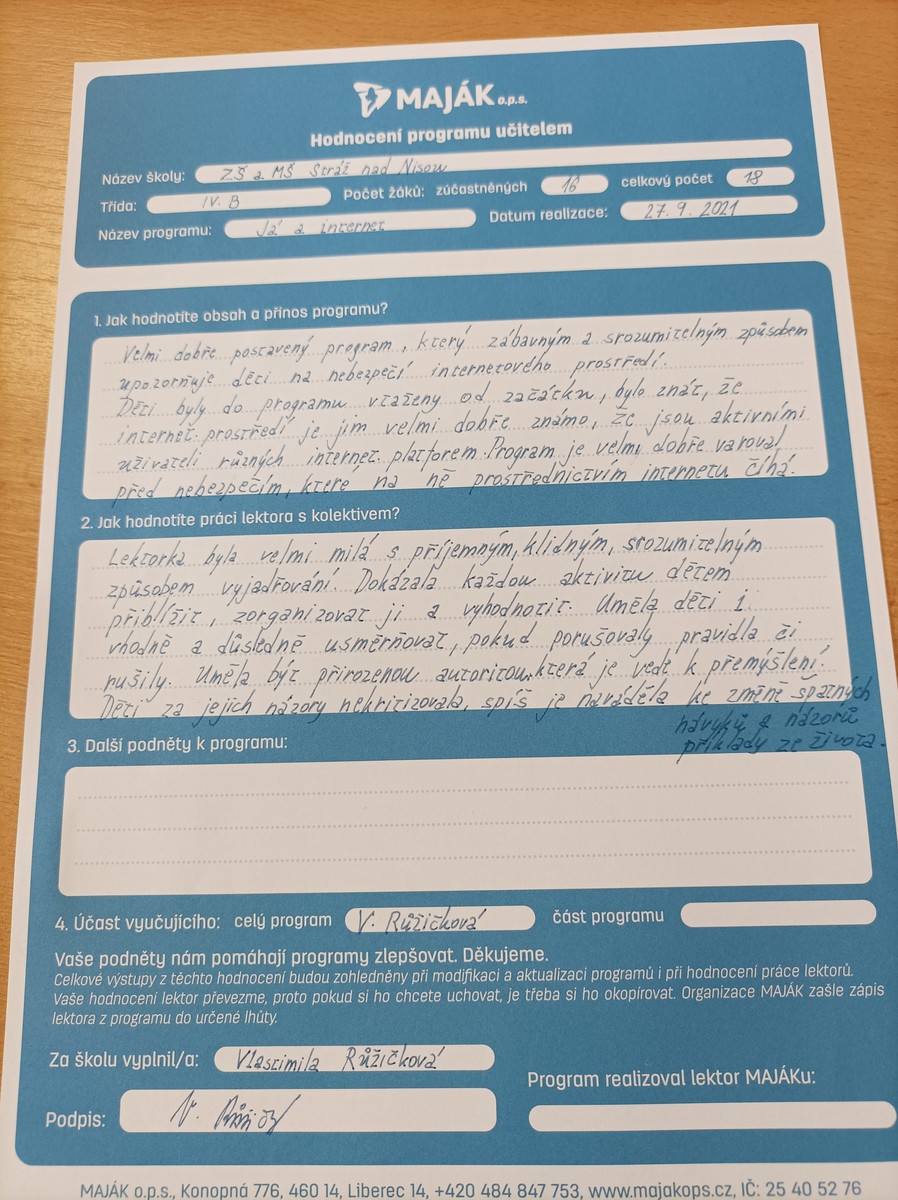 MAJÁK o.p.s.
Hodnocení programu učitelem
Název školy: ZŠ a MŠ Stráž nad Nisou
Třída: IV. B Počet žáků: zúčastněných 16 celkový počet 18
Název programu: Já a internet Datum realizace: 27. 9. 2021
1. Jak hodnotíte obsah a přínos programu?
Velmi dobře postavený program, který zábavným a srozumitelným způsobem
upozorňuje děti na nebezpečí internetového prostředí.
Děti byly do programu vtaženy od začátku, bylo znát, že
internet. prostředí je jim velmi dobře známo, že jsou aktivními
uživateli různých internet. platforem. Program je velmi dobře varoval
před nebezpečím, které na ně prostřednictvím internetu číhá.
2. Jak hodnotíte práci lektora s kolektivem?
Lektorka byla velmi milá s příjemným, klidným, srozumitelným
způsobem vyjadřování. Dokázala každou aktivitu dětem
přiblížit, zorganizovat ji a vyhodnotit. Uměla děti i
vhodně a důsledně usměrňovat, pokud porušovaly pravidla či
rušily. Uměla být přirozenou autoritou, která je vede k přemýšlení.
Děti za jejich názory nekritizovala, spíš je naváděla ke změně špatných
návyků a názorů
příklady ze života.
3. Další podněty k programu:
4. Účast vyučujícího: celý program V. Růžičková část programu
Vaše podněty nám pomáhají programy zlepšovat. Děkujeme.
Celkové výstupy z těchto hodnocení budou zohledněny při modifikaci a aktualizaci programů i při hodnocení práce lektorů.
Vaše hodnocení lektor převezme, proto pokud si ho chcete uchovat, je třeba si ho okopírovat. Organizace MAJÁK zašle zápis
lektora z programu do určené lhůty.
Za školu vyplnil/a: Vlastimila Růžičková
Program realizoval lektor MAJÁKu:
Podpis:
MAJÁK o.p.s., Konopná 776, 460 14, Liberec 14, +420 484 847 753, www.majakops.cz, IČ: 25 40 52 76